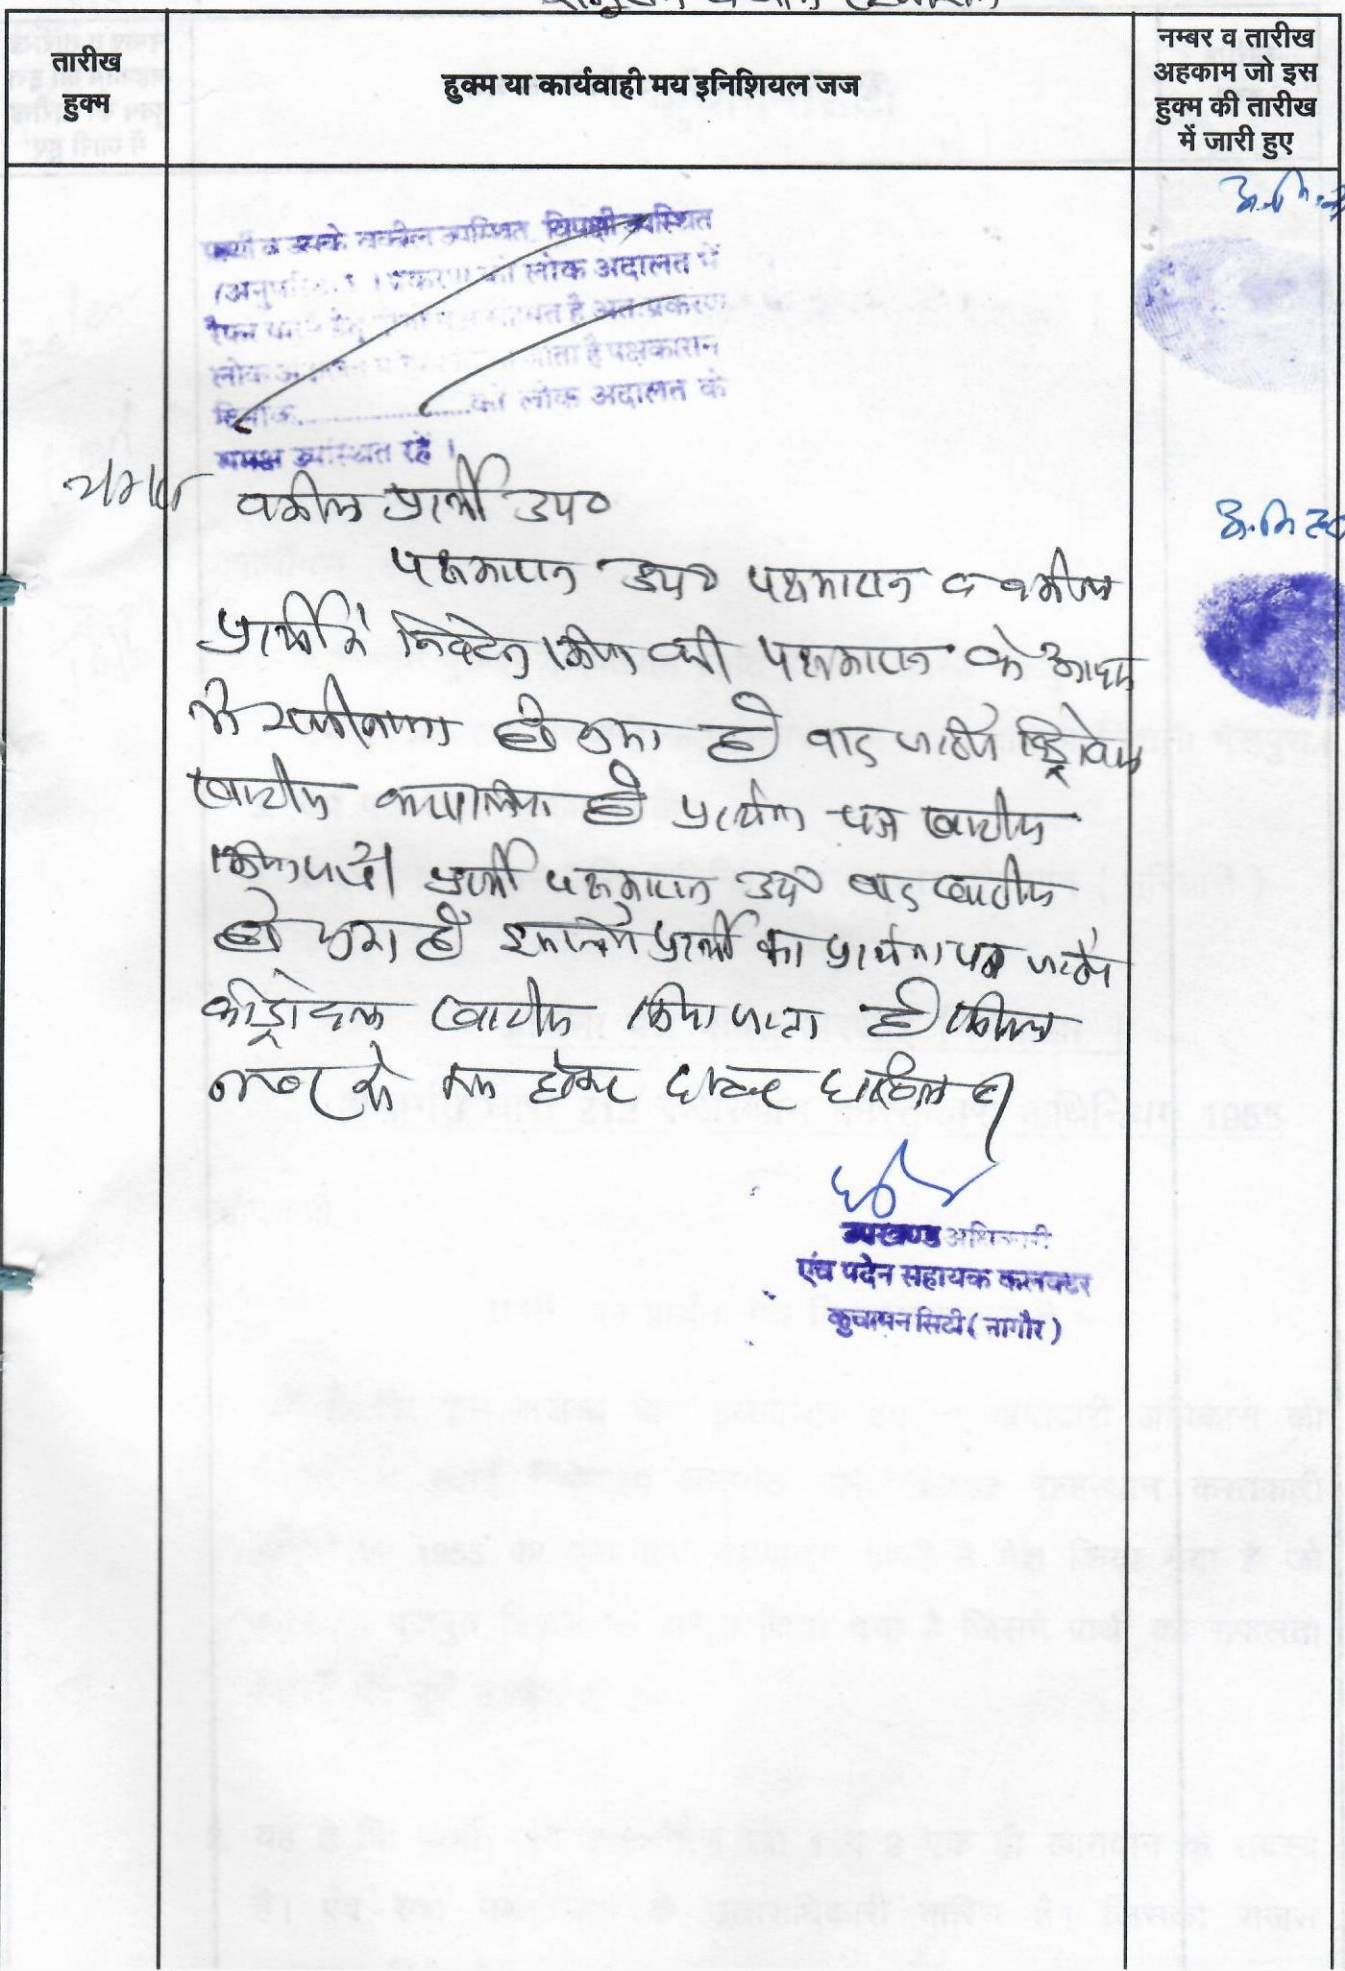 तारीख
हुक्म
हुक्म या कार्यवाही मय इनिशियल जज
नम्बर व तारीख
अहकाम जो इस
हुक्म की तारीख
में जारी हुए
प्रार्थी व उसके वकील उपस्थित. विपक्षी उपस्थित
प्रकरण को लोक अदालत में
है अतः प्रकरण
लोक जाता है पक्षकारान
दिनांक....................को लोक अदालत के
समक्ष उपस्थित रहें ।
वकील प्रार्थी उप०
पक्षकारान उप० पक्षकारान व वकील
प्रार्थी ने निवेदन किया की पक्षकारान के आपस
में राजीनामा हो चुका है वाद जरीये विड्रोवल
खारीज करवा लिया है प्रार्थना पत्र खारीज
किया जावे। प्रार्थी पक्षकारान उप० वाद खारीज
हो चुका है इसलिये प्रार्थी का प्रार्थना पत्र जरीये
वीड्रोवल खारीज किया जाता है।
नम्बर से कम होकर दाखिल
उपखण्ड अधिकारी
एंव पदेन सहायक कलक्टर
कुचामन सिटी ( नागौर )